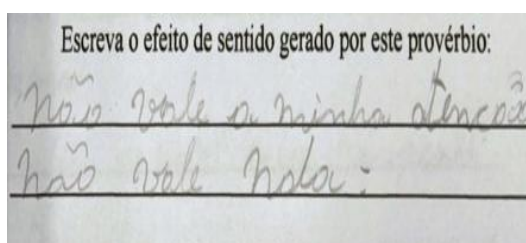 Escreva o efeito de sentido gerado por este provérbio:
não vale a minha atenção
não vale nada.